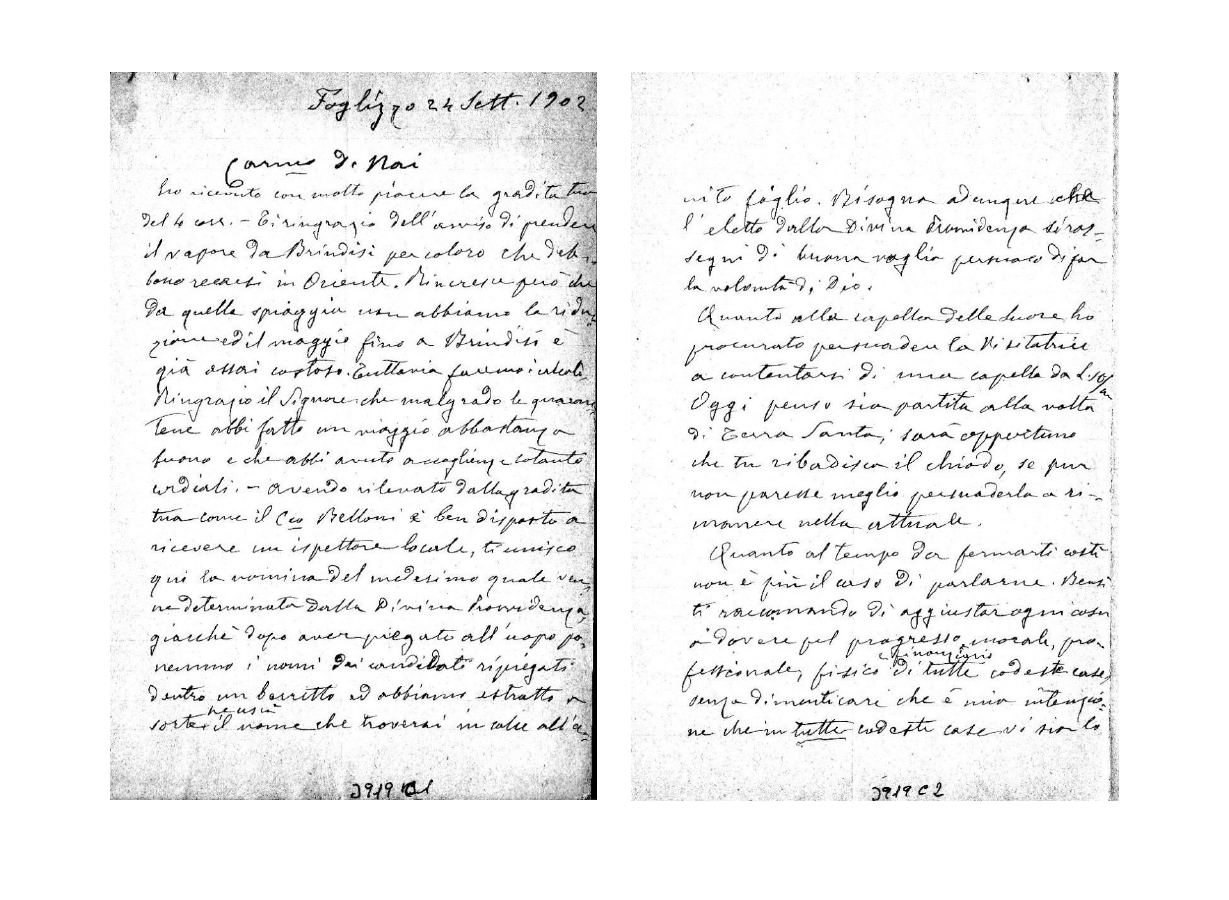 Foglizzo 24 Sett. 1902
Carmo D. Nai
ho ricevuto con molto piacere la gradita tua
del 4 corr. - Ti ringrazio dell'avviso di prendere
il vapore da Brindisi per coloro che deb-
bono recarsi in Oriente. Rincresce però che
da quella spiaggia non abbiamo la ridu-
zione ed il viaggio fino a Brindisi è
già assai costoso. Tuttavia faremo i calcoli.
Ringrazio il Signore che malgrado le quaran-
tene abbi fatto un viaggio abbastanza
buono e che abbi avuto accoglienze cotanto
cordiali. - Avendo rilevato dalla gradita
tua come il Cco Belloni è ben disposto a
ricevere un ispettore locale, ti unisco
qui la nomina del medesimo quale ven-
ne determinata dalla Divina Provvidenza,
giacchè dopo aver pregato all'uopo po-
nemmo i nomi dei candidati ripiegati
dentro un berritto ed abbiamo estratto a
sorte ne uscì il nome che troverai in calce all'u-
J919 C1
nito foglio. Bisogna adunque che
l'eletto dalla Divina Provvidenza si ras-
segni di buona voglia persuaso di far
la volontà di Dio.
Quanto alla capella delle Suore ho
procurato persuadere la Visitatrice
a contentarsi di una capella da
Oggi penso sia partita alla volta
di Terra Santa; sarà opportuno
che tu ribadisca il chiodo, se pur
non paresse meglio persuaderla a ri-
manere nella attuale.
Quanto al tempo da fermarti costì
non è più il caso di parlarne. Bensì
ti raccomando di aggiustar ogni cosa
a dovere pel progresso morale, pro-
fessionale, fisico e finanziario di tutte codeste case,
senza dimenticare che è mia intenzio-
ne che in tutte codeste case vi sia lo
J919 C2